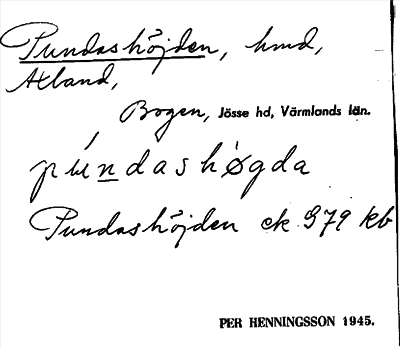 Pundashöjden, hmd,
Axland,
Bogen, Jösse hd, Värmlands län.
púndashøgda
Pundashöjden ek 979 kb
PER HENNINGSSON 1945.